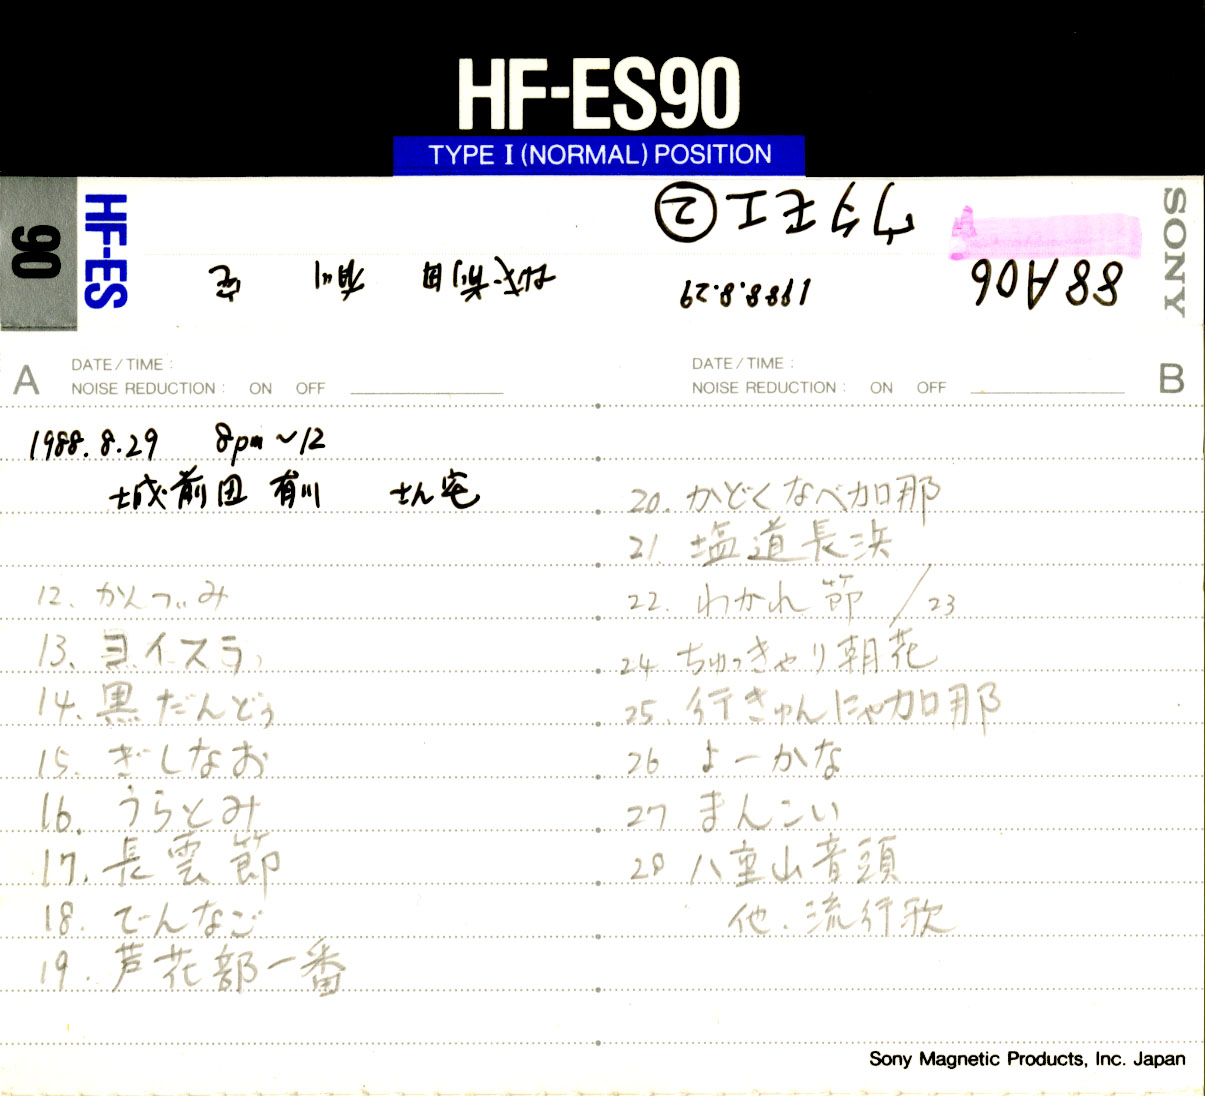 HF-ES90
TYPE I (NORMAL) POSITION
90
HF-ES
SONY
88A06
ウタモエ②
1988.8.29
城前田 有川 宅
A
DATE/TIME :
NOISE REDUCTION : ON OFF
1988.8.29 8pm～12
城前田 有川 さん宅
12. かんつぃみ
13. ヨイスラ
14. 黒だんどぅ
15. ぎしなお
16. うらとみ
17. 長雲節
18. でーんなご
19. 芦花部一番
DATE/TIME :
NOISE REDUCTION : ON OFF
B
20. かどくなべ加那
21. 塩道長浜
22. わかれ節 / 23
24 ちゅっきゃり朝花
25. 行きゅんにゃ加那
26 よーかな
27 まんこい
28 八重山音頭
他.流行歌
Sony Magnetic Products, Inc. Japan